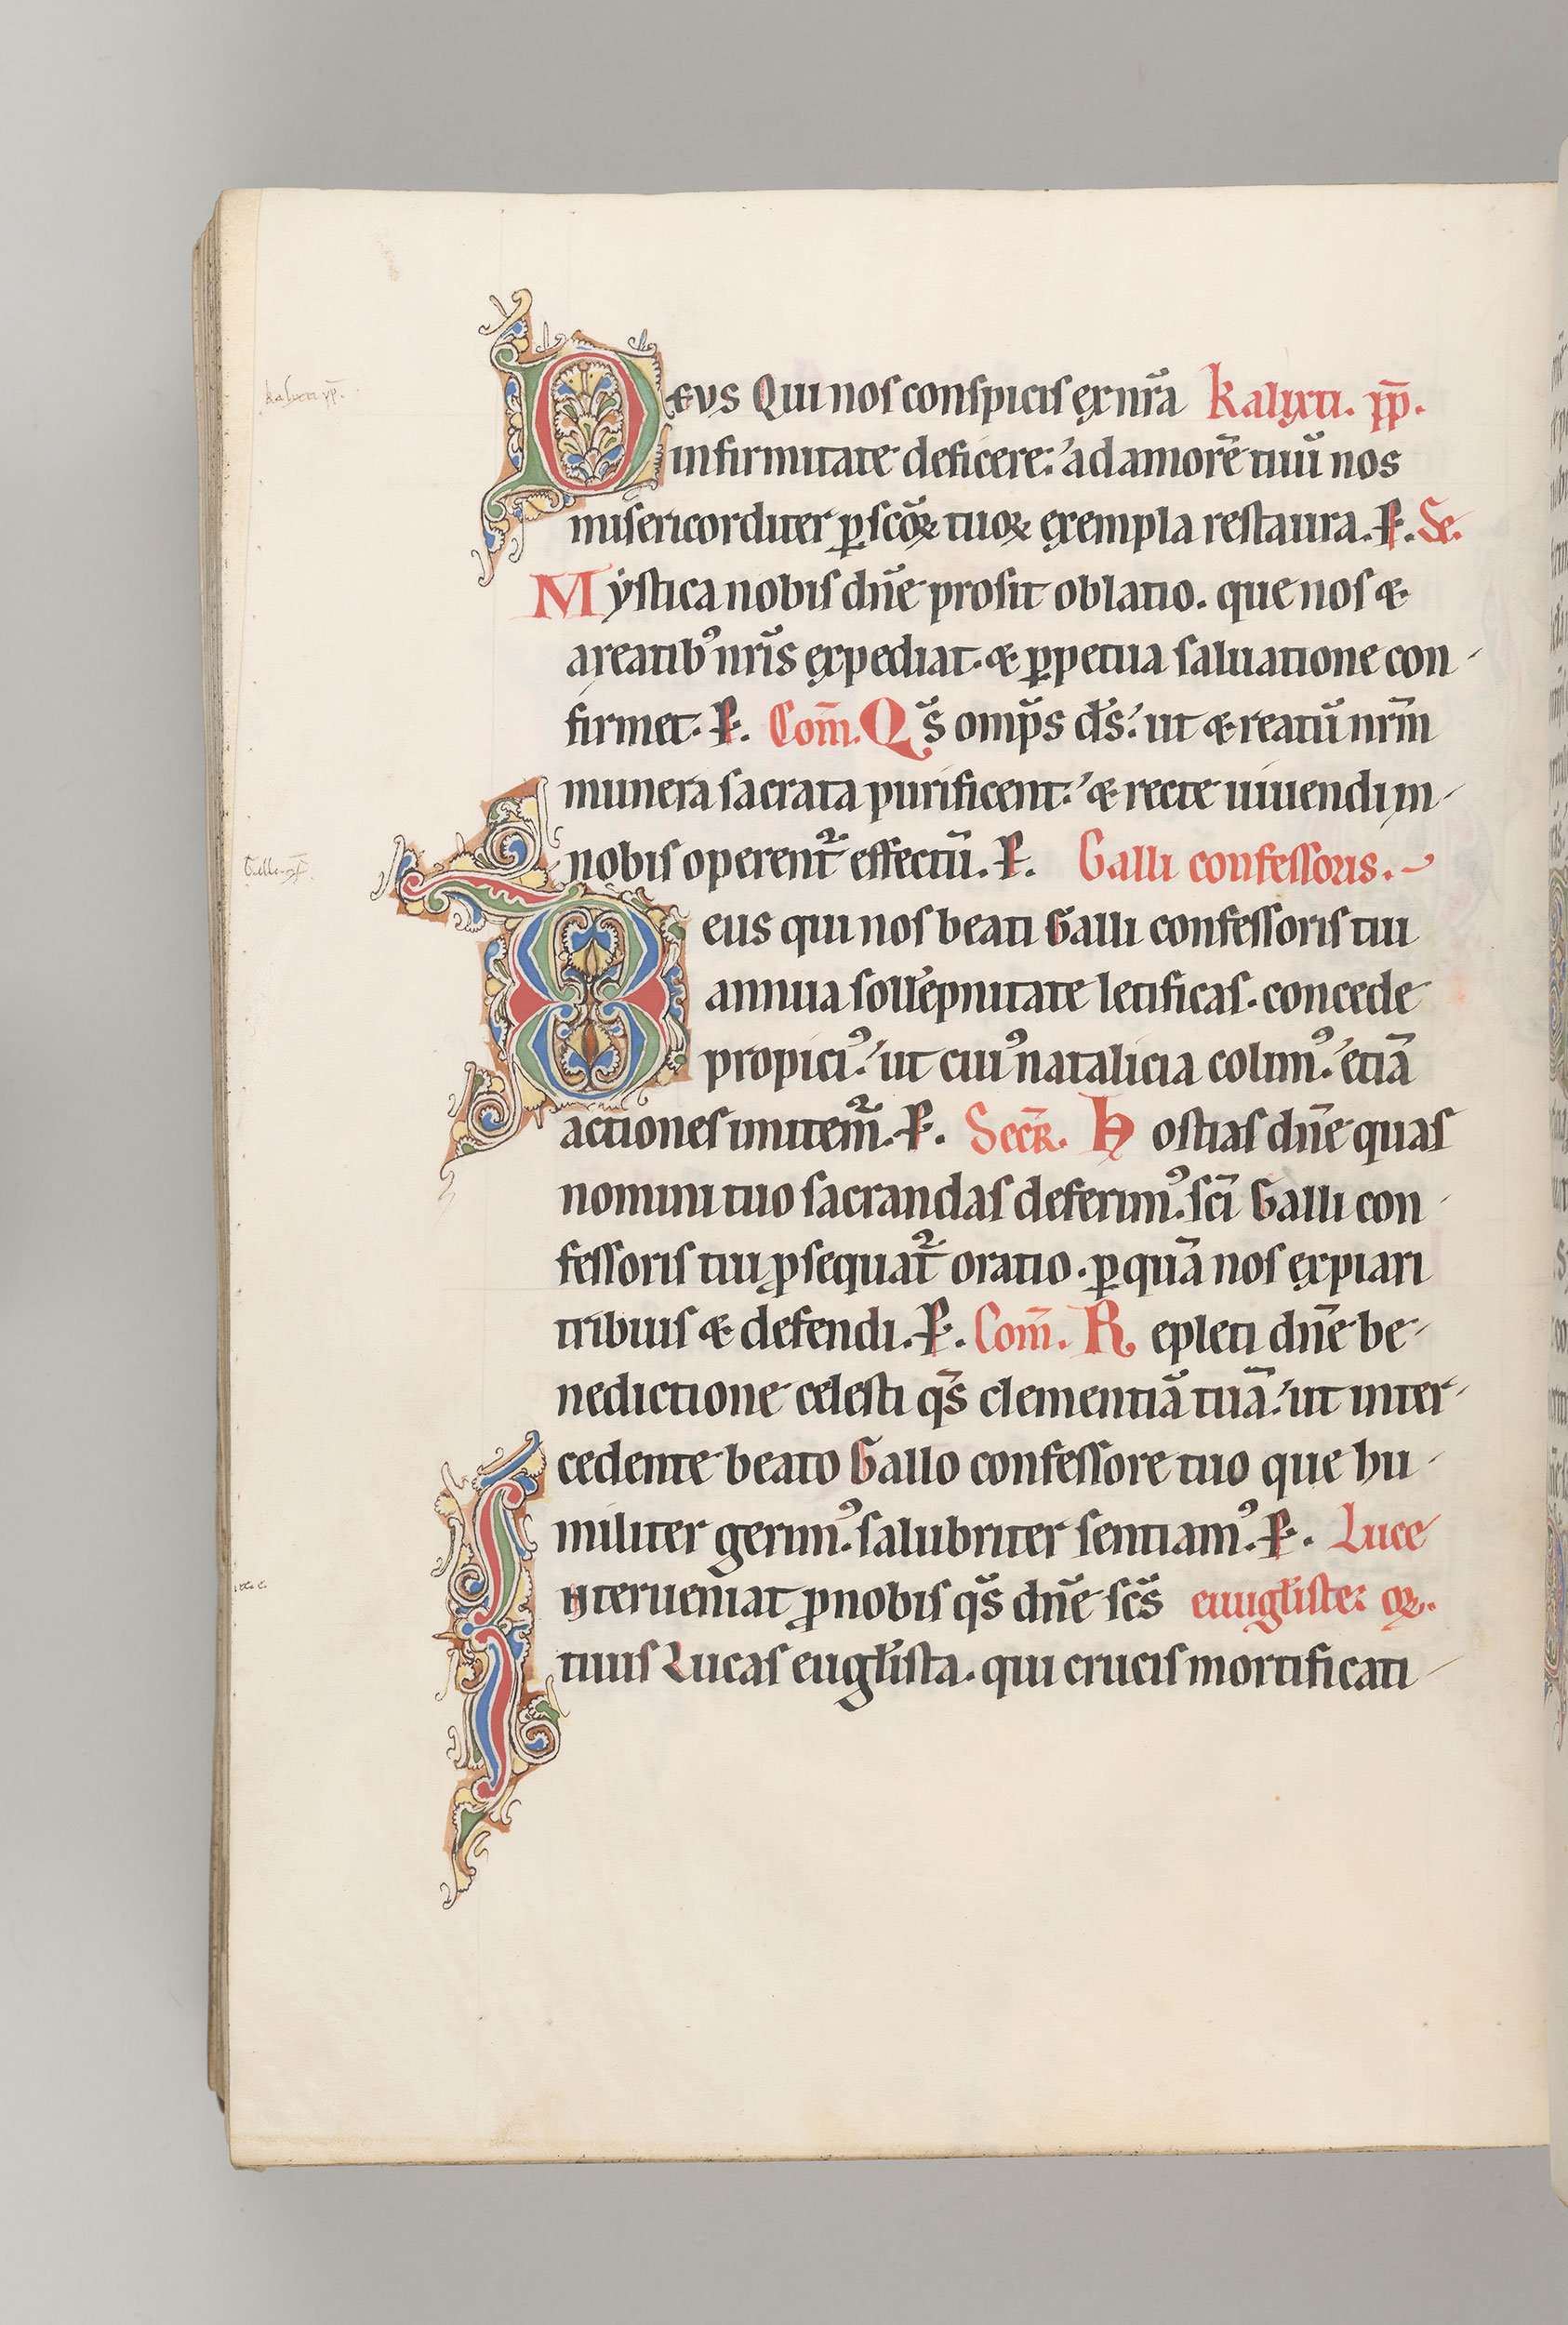 Deus Qui nos conspicis ex nr̄a Kalixti. pp̄.
infirmitate deficere: ad amorē tuū nos
misericorditer ꝑ scōꝝ tuoꝝ exempla restaura. P. Se.
Mystica nobis dn̄e prosit oblatio. que nos &
a reatibꝰ nr̄is expediat. & ꝑpetua saluatione con-
firmet. P. Com̄. Qs̄ omp̄s ds̄: ut & reatū nr̄m
munera sacrata purificent: & recte uiuendi in
nobis operent᷑ effectū. P. Galli confessoris.
Deus qui nos beati Galli confessoris tui
annua soll̄epnitate letificas. concede
propiciꝰ: ut cuiꝰ natalicia colimꝰ: etiā
actiones imitem᷑. P. Secr̄. Hostias dn̄e quas
nomini tuo sacrandas deferimꝰ. sc̄i Galli con-
fessoris tui ꝓsequat᷑ oratio. ꝑ quā nos expiari
tribuis & defendi. P. Com̄. Repleti dn̄e be-
nedictione celesti qs̄ clementiā tuā: ut inter-
cedente beato Gallo confessore tuo que hu-
militer gerimꝰ. salubriter sentiamꝰ. P. Luce
Interueniat ꝓ nobis qs̄ dn̄e sc̄s euuḡliste: oꝝ.
tuus Lucas euḡlista. qui crucis mortificati-
Kalixti pp̄.
Gallo cf̄.